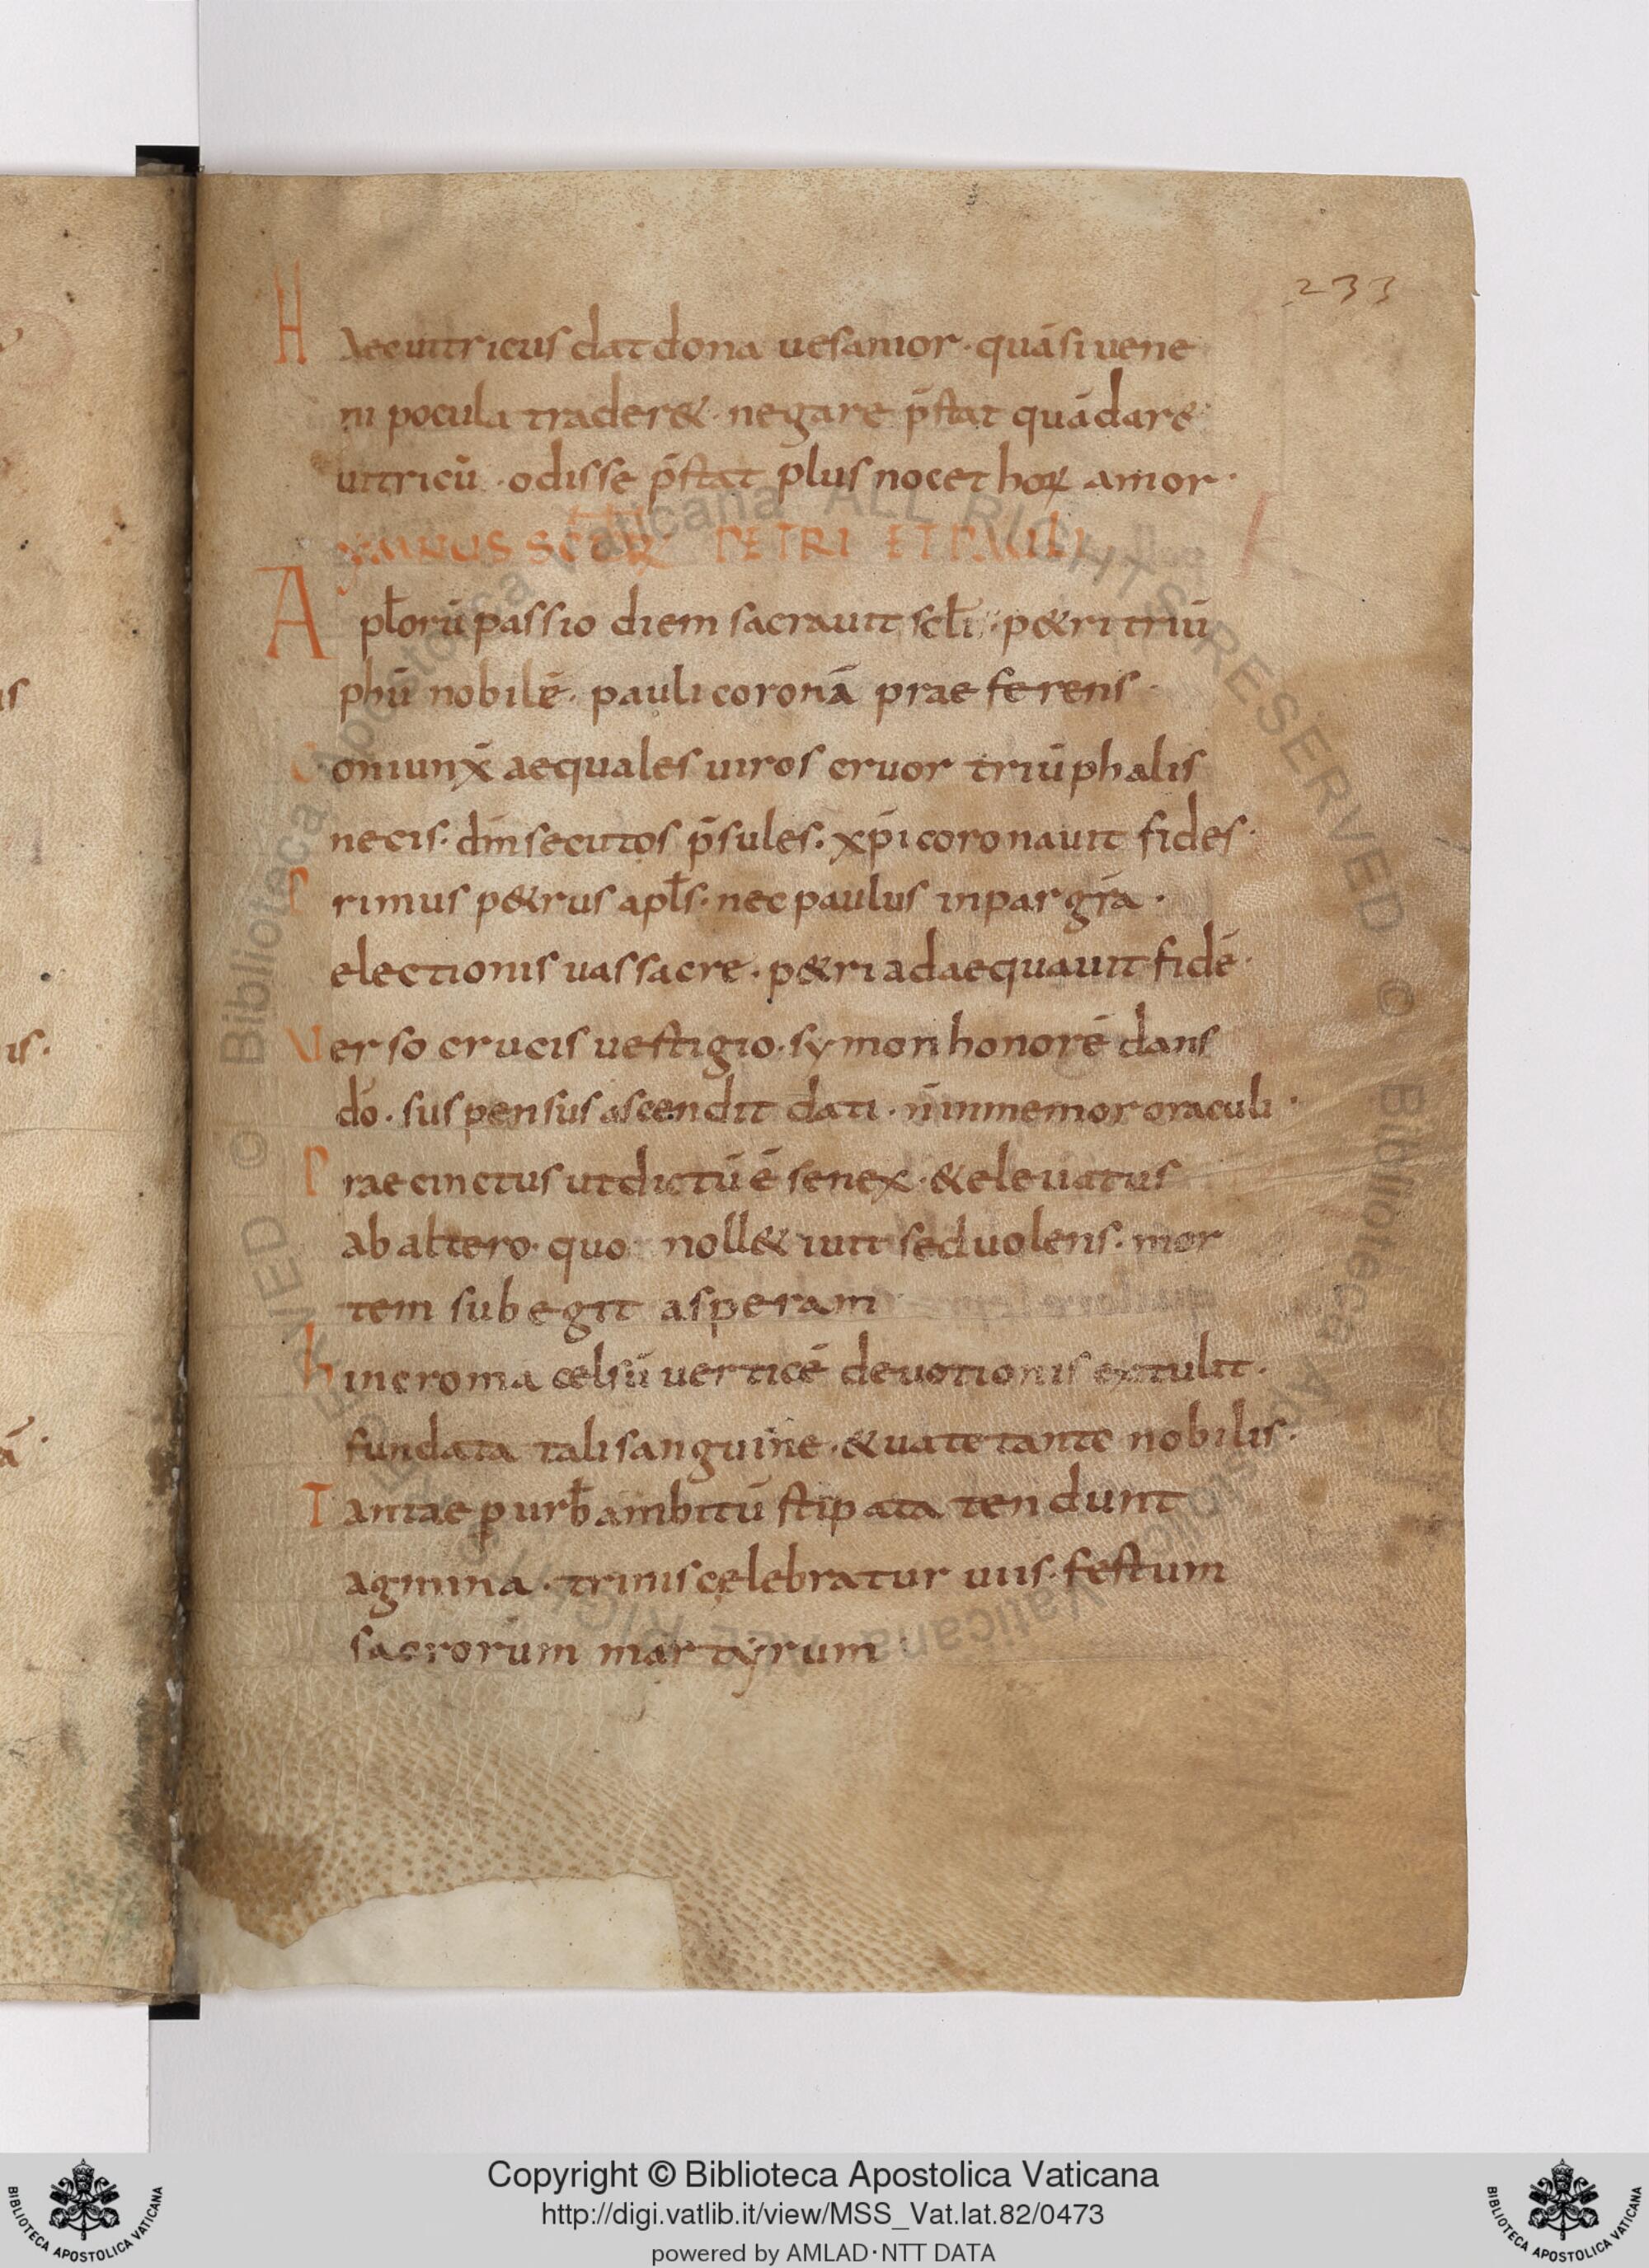 233
Haec uitricus dat dona uesamor · quāsi uene
ni pocula trader& · negare p̄stat quā dare
uitricū · odisse p̄stat plus nocet hoꝝ amor ·
YMNUS SCŌRꝜ PETRI ET PAULI
Apl̄orū passio diem sacrauit sc̄li · p&ri triū
phū nobilē · pauli coronā prae ferens ·
Coniunx̄ aequales uiros cruor triūphalis
necis · dn̄m secutos p̄sules · xp̄i coronauit fides ·
Primus p&rus apl̄s · nec paulus inpar gr̄a ·
electionis uas sacre · p&ri adaequauit fidē ·
Uerso crucis uestigio · symon honorē dans
dō · suspensus ascendit dati · n̄ inmemor oraculi ·
Prae cinctus ut dictū ē senex · & eleuatus
ab altero · quo noll& iuit sed uolens · mor
tem subegit asperam
hinc roma celsū uerticē deuotionis extulit ·
fundata tali sanguine · & uate tante nobilis ·
Tantae ꝑ urb̄ ambitū stipata tendunt
agmina · trinis celebratur uiis · festum
sacrorum martẏrum ·
Copyright © Biblioteca Apostolica Vaticana
http://digi.vatlib.it/view/MSS_Vat.lat.82/0473
powered by AMLAD·NTT DATA
BIBLIOTECA APOSTOLICA VATICANA
BIBLIOTECA APOSTOLICA VATICANA